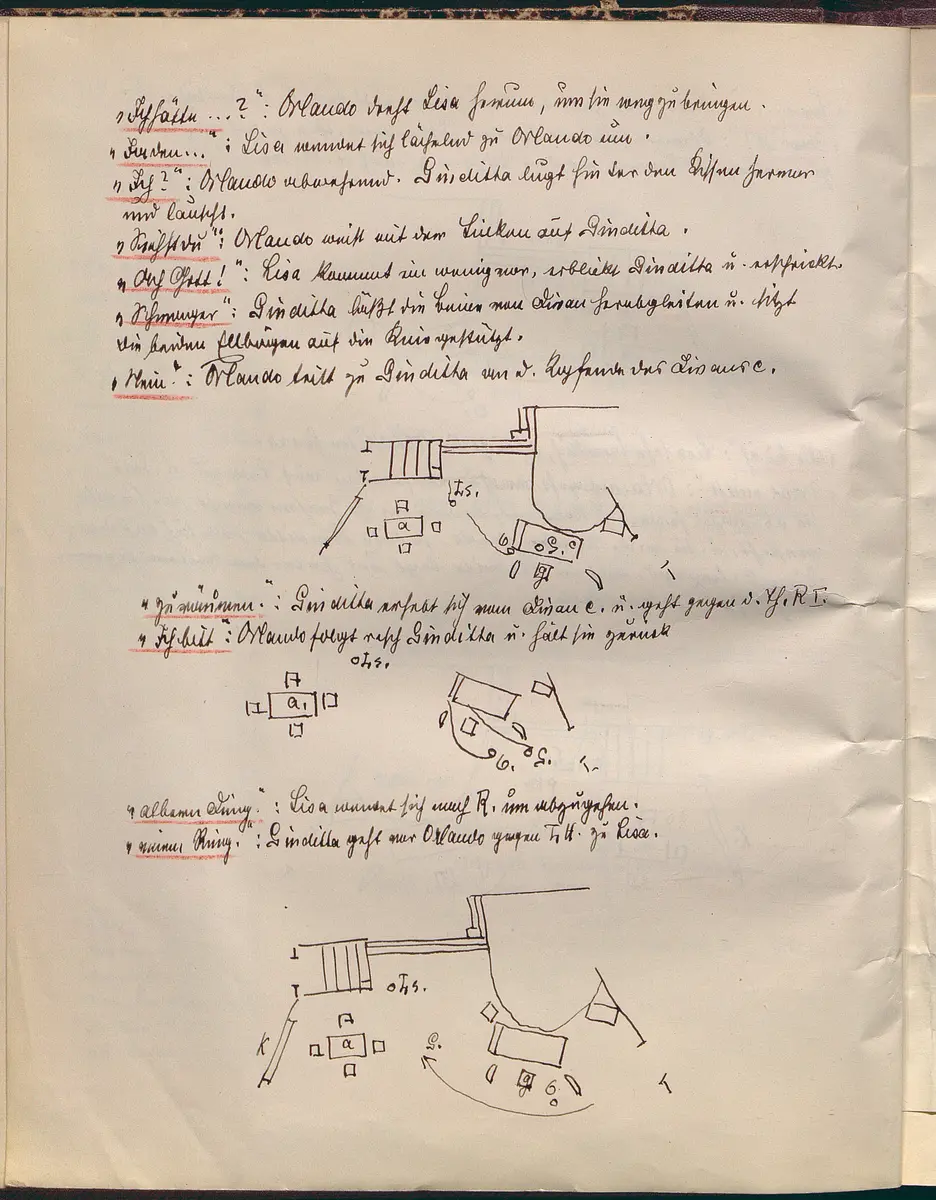 „Ich hätte ...?“: Orlando dreht Lisa herum, um sie wegzubringen.
„Faden...“: Lisa wendet sich lächelnd zu Orlando um.
„Ich?“: Orlando abwehrend. Giuditta lugt hinter den Kissen hervor
und lauscht.
„Siehst du“: Orlando weist mit der Linken auf Giuditta.
„Ach Gott!“: Lisa kommt ein wenig vor, erblickt Giuditta u. erschrickt.
„Schwanger“: Giuditta läßt die Beine vom Divan herabgleiten u. sitzt
die beiden Ellbogen auf die Knie gestützt.
„Nein.“: Orlando tritt zu Giuditta an d. Kopfende des Divans c.
Ls.
a
G. c
g
„zu räumen.“: Giuditta erhebt sich vom Divan c. u. geht gegen d. Th. R I.
„Ich bitt“: Orlando folgt rasch Giuditta u. hält sie zurück
Ls.
a,
G.
„albern Ding.“: Lisa wendet sich nach R. um abzugehen.
„einen Ring.“: Giuditta geht vor Orlando gegen L H. zu Lisa.
Ls.
K
a
G.
g